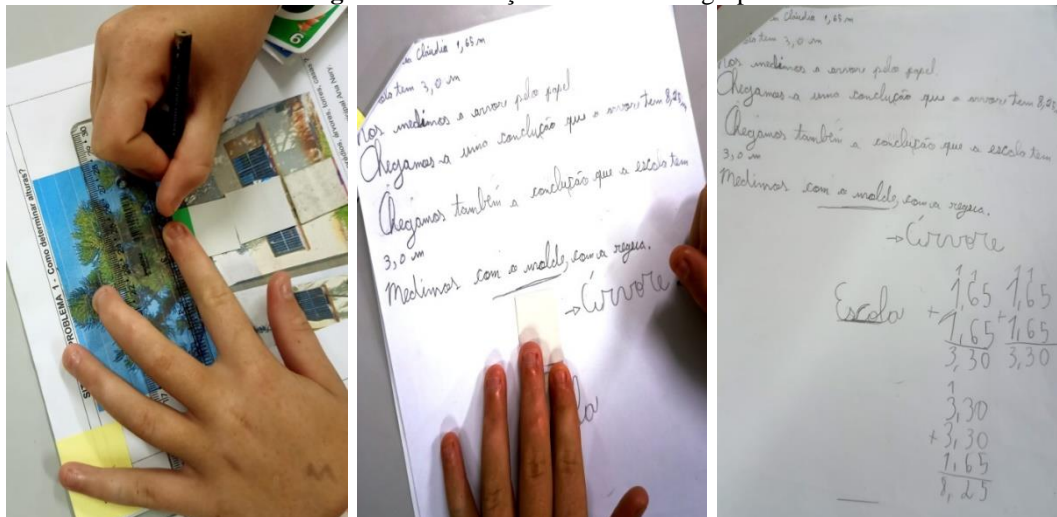 PROBLEMA 1 - Como determinar alturas?
Cláudia 1,65 m
tem 3,0 m
Nos medimos a arvore pelo papel.
Chegamos a uma conclução que a arvore tem 8,25 m
Chegamos também a conclução que a escola tem
3,0 m
Medimos com o molde, com a regua.
→ Árvore
la
Cláudia 1,65 m
tem 3,0 m
Nos medimos a arvore pelo papel.
Chegamos a uma conclução que a arvore tem 8,25
Chegamos também a conclução que a escola tem
3,0 m
Medimos com o molde, com a regua.
→ Árvore
Escola
1 1 1 1
1,65 1,65
+ 1,65 + 1,65
3,30 3,30
1
3,30
+ 3,30
1,65
8,25